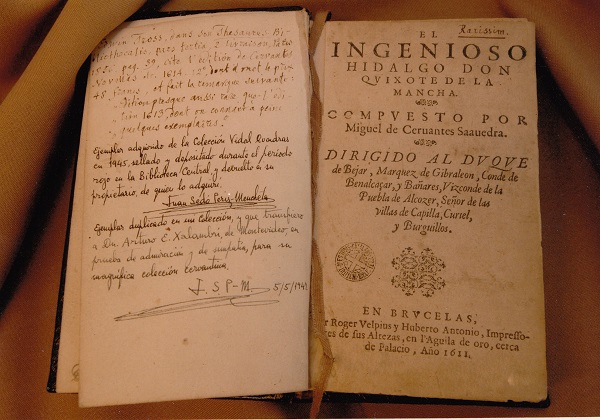 dans son Thesaurus Bi-
2 livraison,
pag. 59, cite
Novelas de 1614. 12°, dont il met le prix
48 francs, et fait la remarque suivante:
Edition presque aussi rare que l'édi-
1613, dont on connait à peine
quelques exemplaires."
Ejemplar adquirido de la Colección Vidal Quadras
en 1945, sellado y depositado durante el periodo
rojo en la Biblioteca Central y devuelto a su
propietario, de quien lo adquirí.
Juan Sedó Peris-Mencheta
Ejemplar duplicado en mi Colección, y que transfiero
a Dn. Arturo E. Xalambrí, de Montevideo, en
prueba de admiración y de simpatía, para su
magnífica colección cervantina.
J. S P-M. 5/5/1948
Rarissim.
EL
INGENIOSO
HIDALGO DON
QVIXOTE DE LA
MANCHA.
COMPVESTO POR
Miguel de Ceruantes Saauedra.
DIRIGIDO AL DVQVE
de Bejar, Marquez de Gibraleon, Conde de
Benalcaçar, y Bañares, Vizconde de la
Puebla de Alcozer, Señor de las
villas de Capilla, Curiel,
y Burguillos.
EN BRVCELAS,
r Roger Velpius y Huberto Antonio, Impresso-
res de sus Altezas, en l'Aguila de oro, cerca
de Palacio, Año 1611.